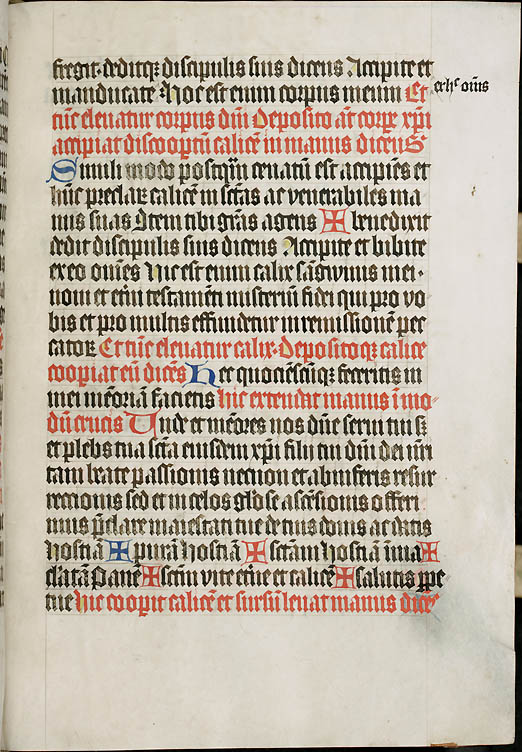 fregit · deditq; discipulis suis dicens Accipite et
manducate Hoc est enim corpus meum Et
ex hᶜ om̅s
tūc eleuatur corpus dn̄i Deposito aūt corpe xp̄i
accipiat discoopertū calicē in manus dicens
Simili modo postq̄m cenatū est accipiens et
hūc preclarꝝ calicē in sc̄tas ac venerabiles ma
nus suas Item tibi gr̄as agens ✠ benedixit
dedit discipulis suis dicens Accipite et bibite
ex eo om̄es Hic est enim calix sāgwinis mei ·
noui et et̄ni testamēti misteriū fidei qui pro vo
bis et pro multis effundetur in remissionē pec
catoꝝ Et tūc eleuatur calix · Depositoq; calice
coopiat eū dicēs Hec quociēscūq; feceritis in
mei memoriā facietis hic extendat manus ī mo
dū crucis Unde et memores nos dn̄e serui tui sꝫ
et plebs tua sc̄ta eiusdem xp̄i filij tui dn̄i dei nr̄i
tam beate passionis necnon et ab inferis resur
rectionis sed et in celos gl̄ose ascēsionis offeri
mus p̄clare maiestati tue de tuis donis ac datis
hostiā ✠ purā hostiā ✠ sc̄tam hostiā īma ✠
culatā Panē ✠ sc̄tm vite et̄ne et calicē ✠ salutis ꝑpe
tue hic coopit calicē et sursū leuat manus dicēs